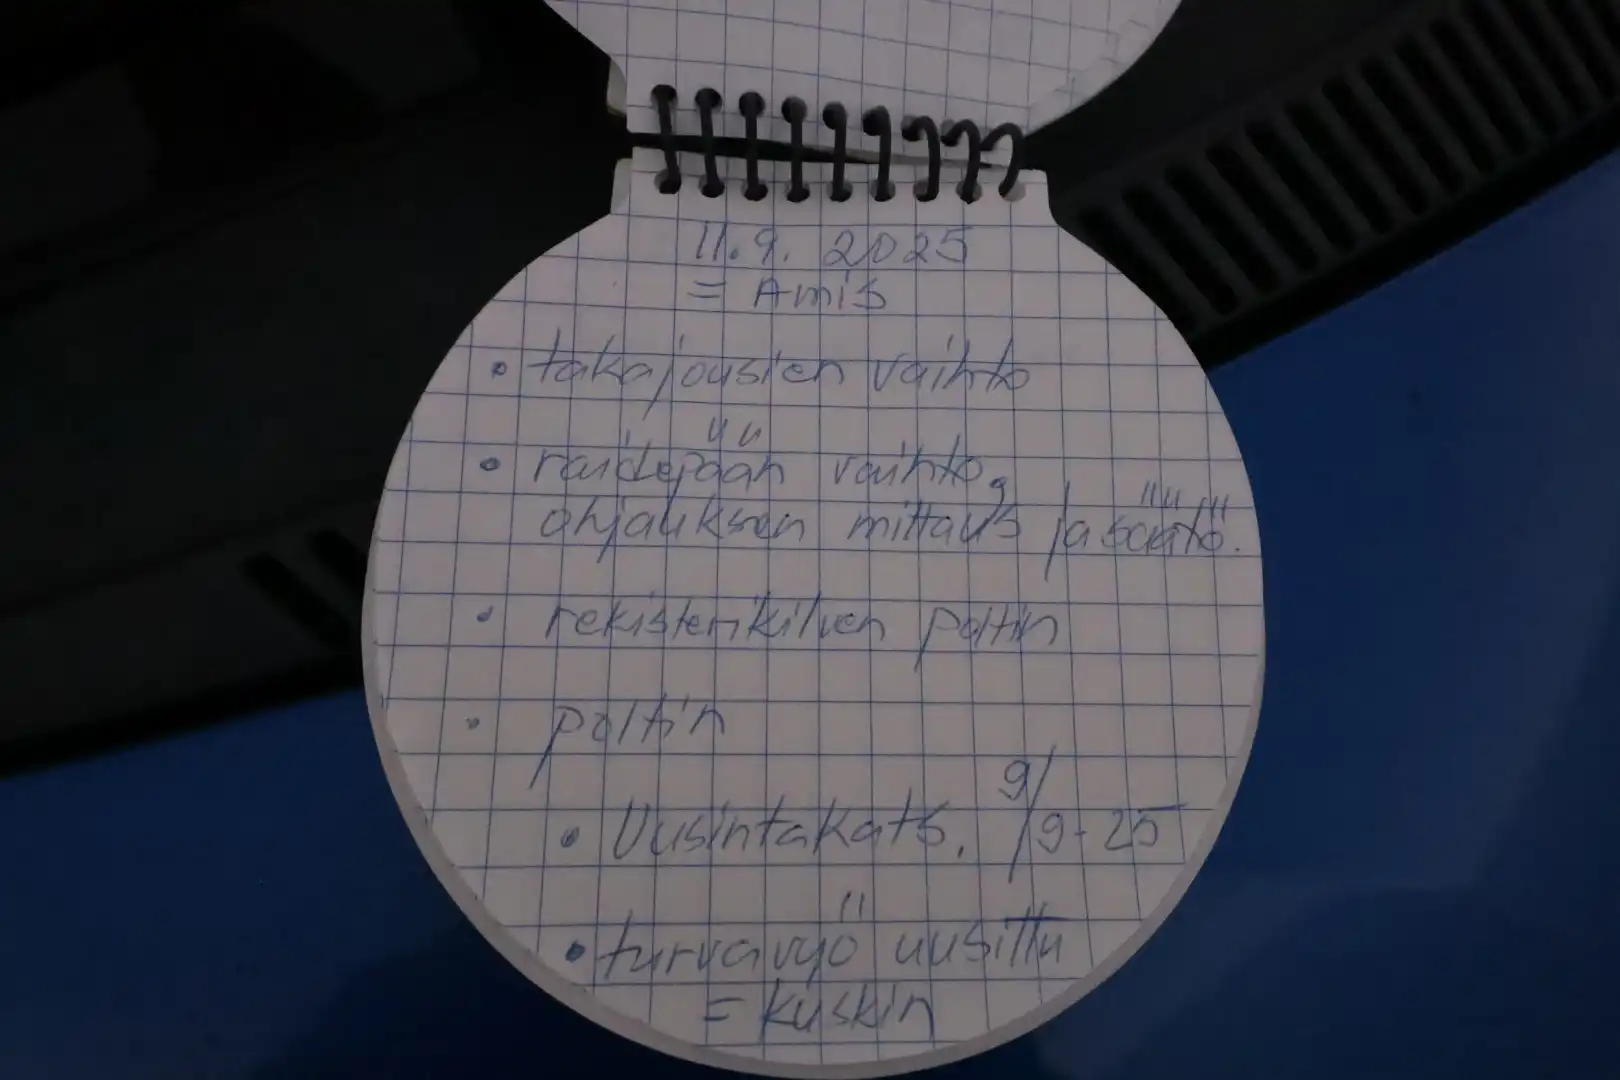 11.9. 2025
= Amis
• takajousien vaihto
• raidepään vaihto,
ohjauksen mittaus ja säätö.
• rekisterikilven poltin
• poltin
• Uusintakats. 9/9-25
• turvavyö uusittu
= kuskin